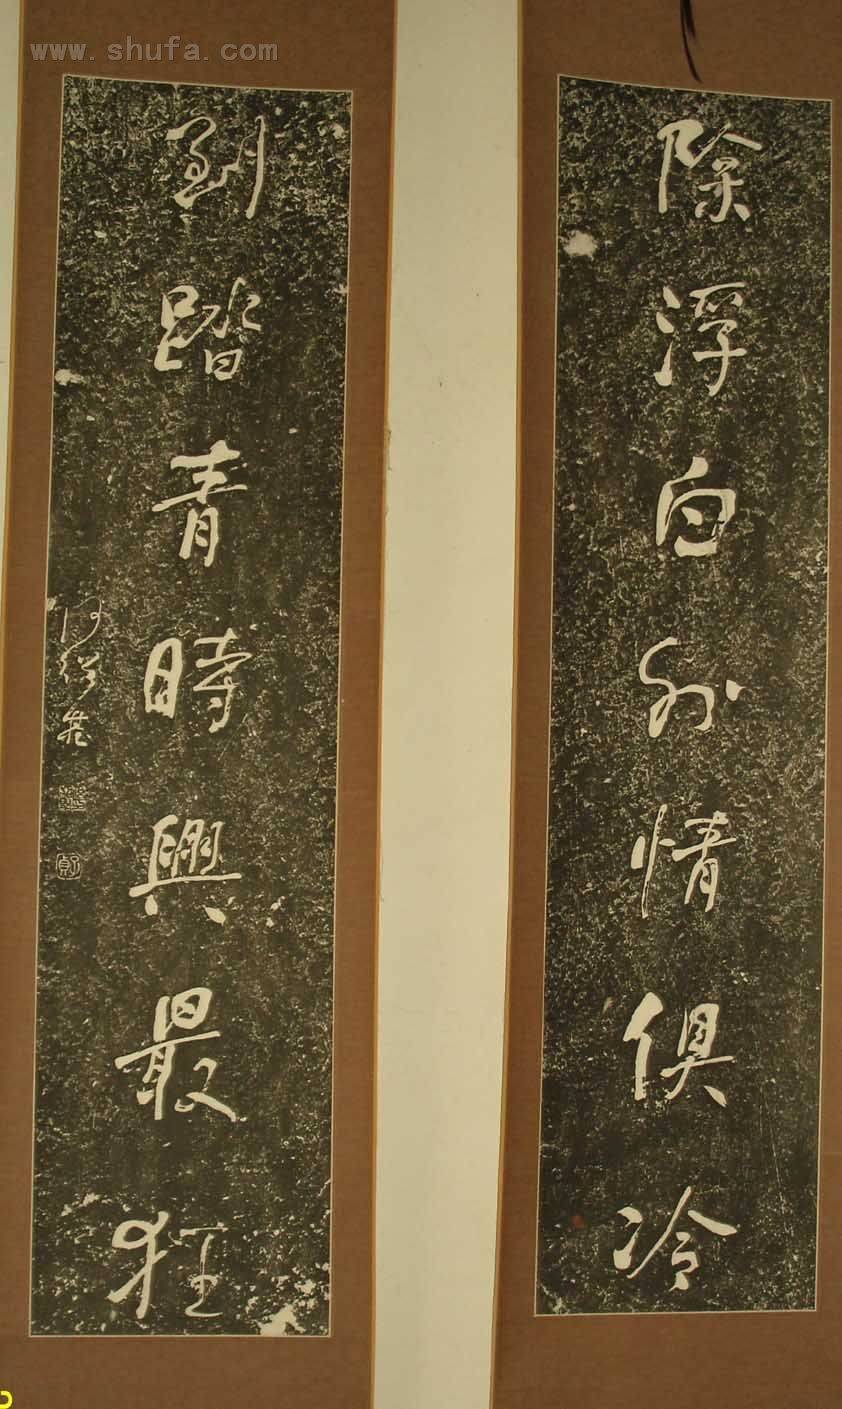 www.shufa.com
除浮白外情俱冷
到踏青時興最狂
何紹基